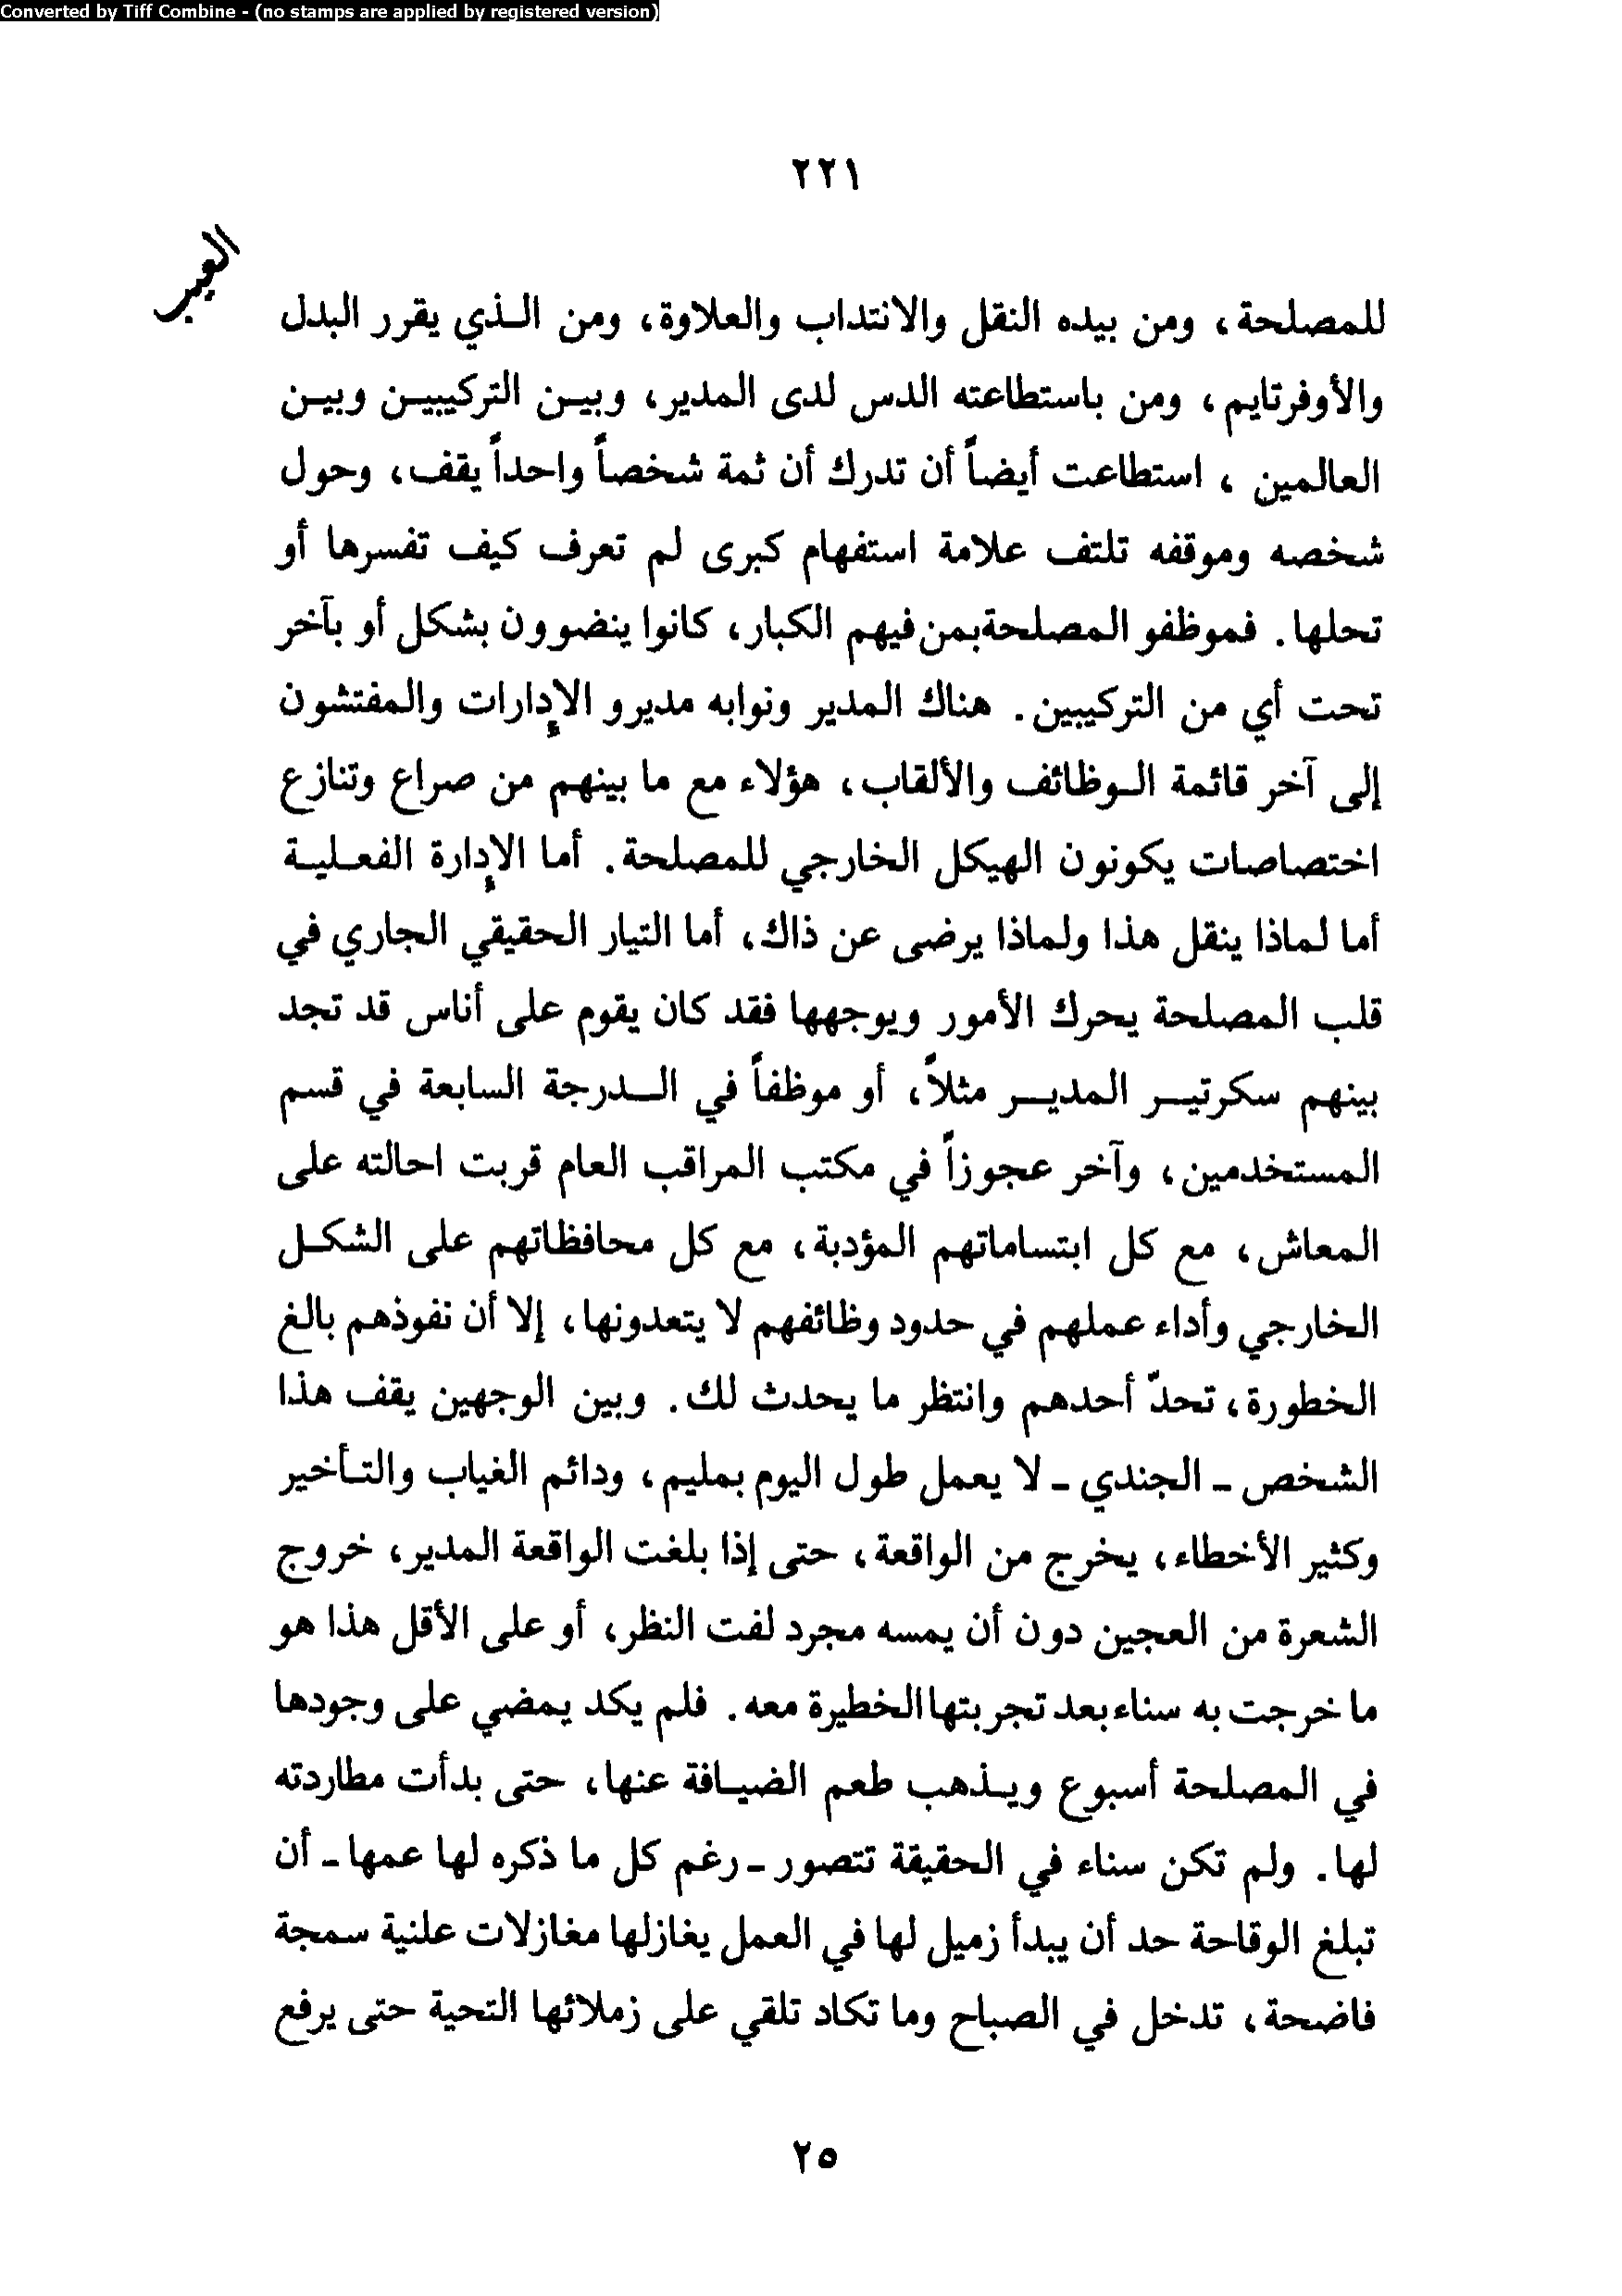 Converted by Tiff Combine - (no stamps are applied by registered version)
٢٢١
العيب
للمصلحة، ومن بيده النقل والانتداب والعلاوة، ومن الـذي يقرر البدل
والأوفرتايم، ومن باستطاعته الدس لدى المدير، وبيـن التركيبيـن وبيـن
العالمين ، استطاعت أيضاً أن تدرك أن ثمة شخصاً واحداً يقف، وحول
شخصه وموقفه تلتف علامة استفهام كبرى لم تعرف كيف تفسرها أو
تحلها. فموظفو المصلحة بمن فيهم الكبار، كانوا ينضوون بشكل أو بآخر
تحت أي من التركيبين. هناك المدير ونوابه مديرو الإدارات والمفتشون
إلى آخر قائمة الـوظائف والألقاب، هؤلاء مع ما بينهم من صراع وتنازع
اختصاصات يكونون الهيكل الخارجي للمصلحة. أما الإدارة الفعـليـة
أما لماذا ينقل هذا ولماذا يرضى عن ذاك، أما التيار الحقيقي الجاري في
قلب المصلحة يحرك الأمور ويوجهها فقد كان يقوم على أناس قد تجد
بينهم سكرتيـر المديـر مثلاً، أو موظفاً في الـدرجة السابعة في قسم
المستخدمين، وآخر عجوزاً في مكتب المراقب العام قربت احالته على
المعاش، مع كل ابتساماتهم المؤدبة، مع كل محافظاتهم على الشكـل
الخارجي وأداء عملهم في حدود وظائفهم لا يتعدونها، إلا أن نفوذهم بالغ
الخطورة، تحدّ أحدهم وانتظر ما يحدث لك. وبين الوجهين يقف هذا
الشخص - الجندي - لا يعمل طول اليوم بمليم، ودائم الغياب والتـأخير
وكثير الأخطاء، يخرج من الواقعة، حتى إذا بلغت الواقعة المدير، خروج
الشعرة من العجين دون أن يمسه مجرد لفت النظر، أو على الأقل هذا هو
ما خرجت به سناء بعد تجربتها الخطيرة معه. فلم يكد يمضي على وجودها
في المصلحة أسبوع ويـذهب طعم الضيـافة عنها، حتى بدأت مطاردته
لها. ولم تكن سناء في الحقيقة تتصور - رغم كل ما ذكره لها عمها - أن
تبلغ الوقاحة حد أن يبدأ زميل لها في العمل يغازلها مغازلات علنية سمجة
فاضحة، تدخل في الصباح وما تكاد تلقي على زملائها التحية حتى يرفع
٢٥